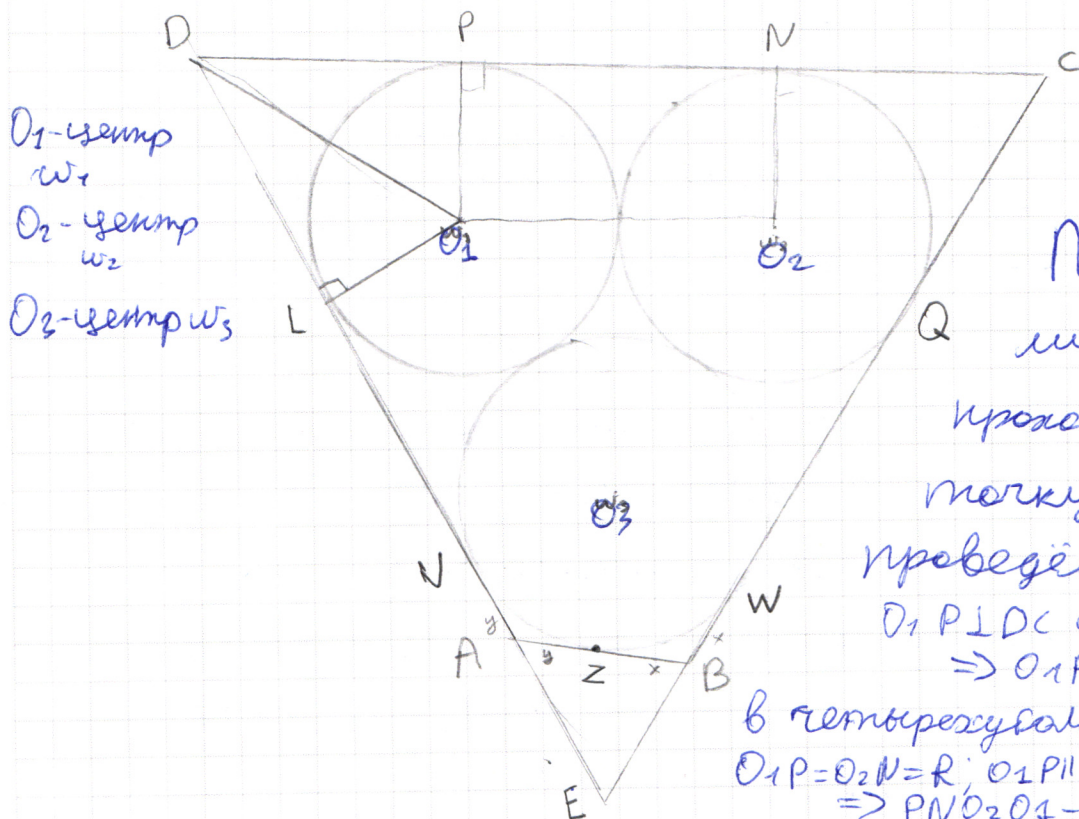 D P N C
O1-центр
w1
O2-центр
w2
O3-центр w3
O1 O2
L Q
O3
N W
y
A y Z x B
x
E
П
ли
прохо
точку
проведё
O1P⊥DC
=> O1P
в четырехугол
O1P=O2N=R; O1P||
=> PNO2O1-